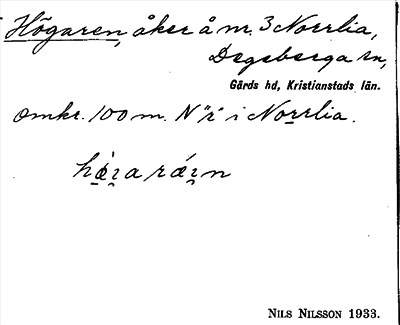 Högaren, åker å m. 3 Norrlia,
Degeberga sn,
Gärds hd, Kristianstads län.
omkr. 100 m. N "r" i Norrlia.
NILS NILSSON 1933.